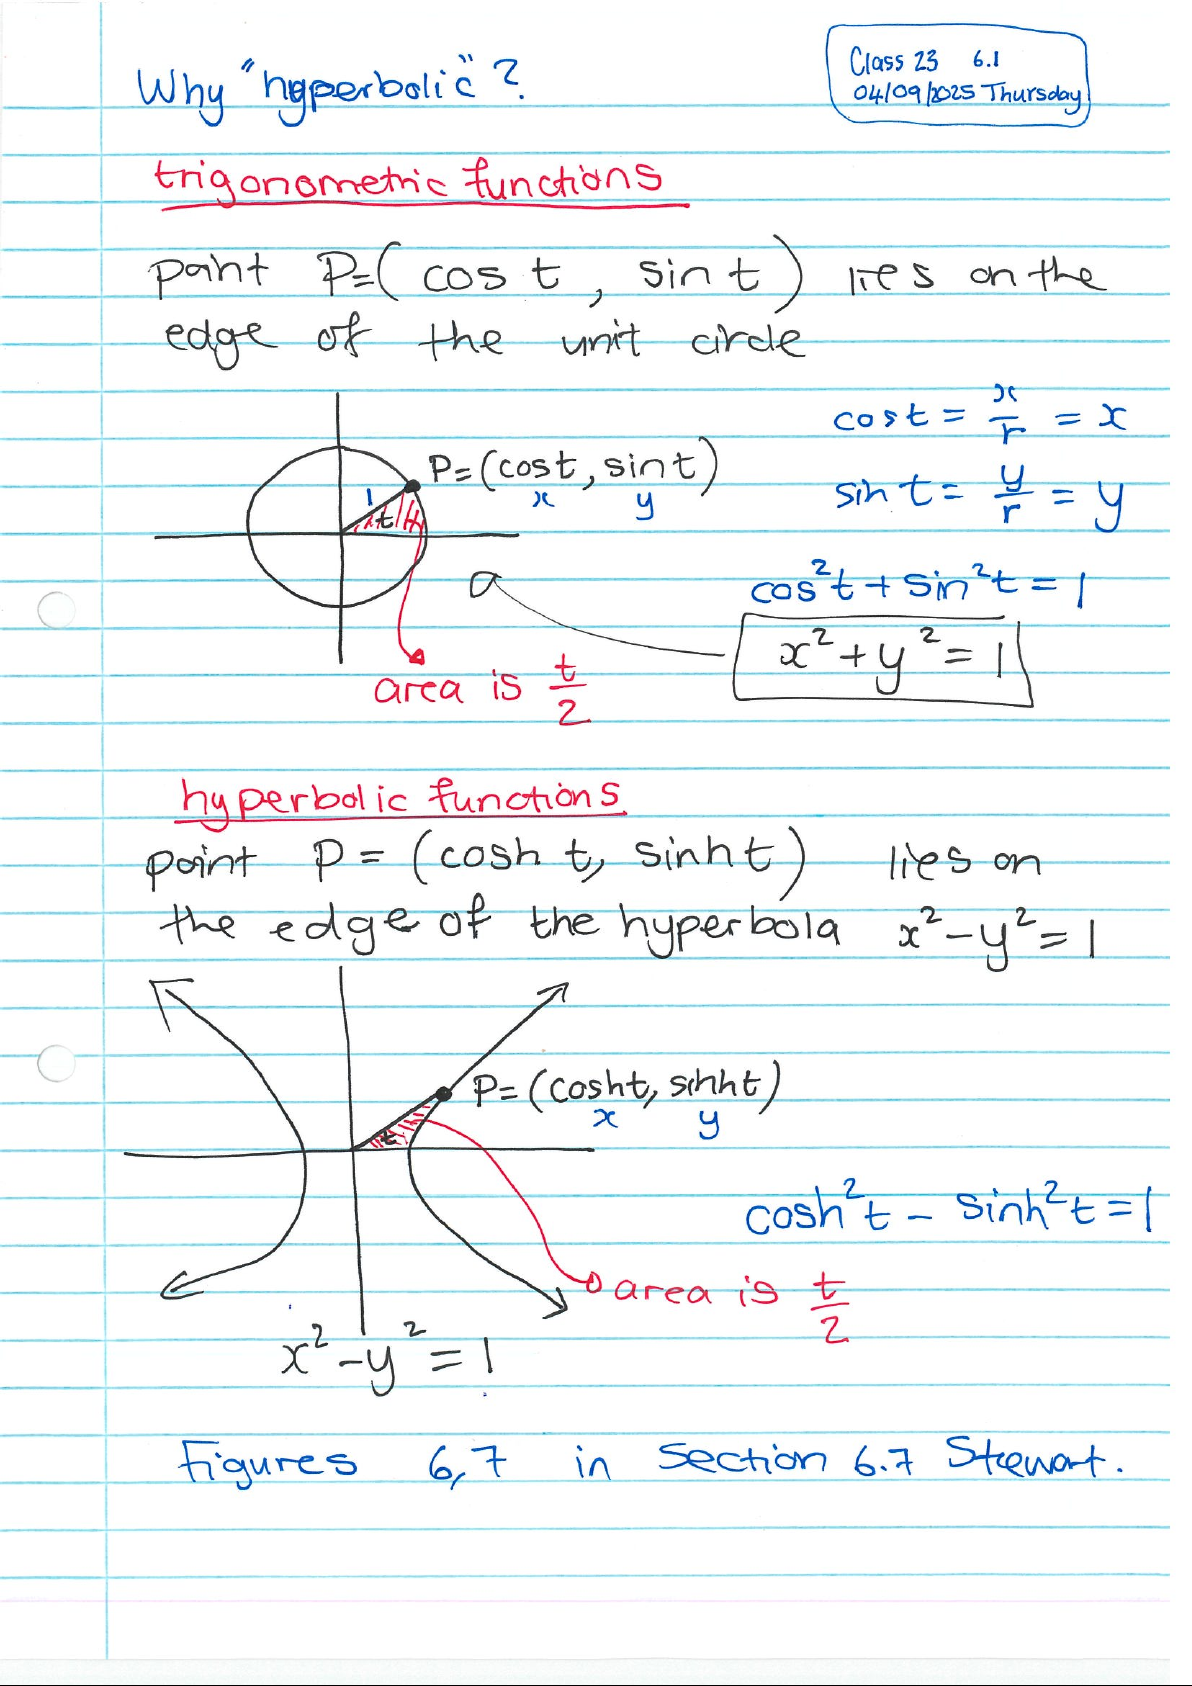 Why "hyperbolic"?
Class 23 6.1
04/09/2025 Thursday
trigonometric functions
point P=(cos t, sin t) lies on the
edge of the unit circle
cos t = x/r = x
P=(cos t, sin t)
x y
1
t
sin t = y/r = y
cos²t + sin²t = 1
x² + y² = 1
area is t/2
hyperbolic functions
point P = (cosh t, sinh t) lies on
the edge of the hyperbola x² - y² = 1
P=(cosh t, sinh t)
x y
t
cosh²t - sinh²t = 1
area is t/2
x² - y² = 1
Figures 6,7 in section 6.7 Stewart.